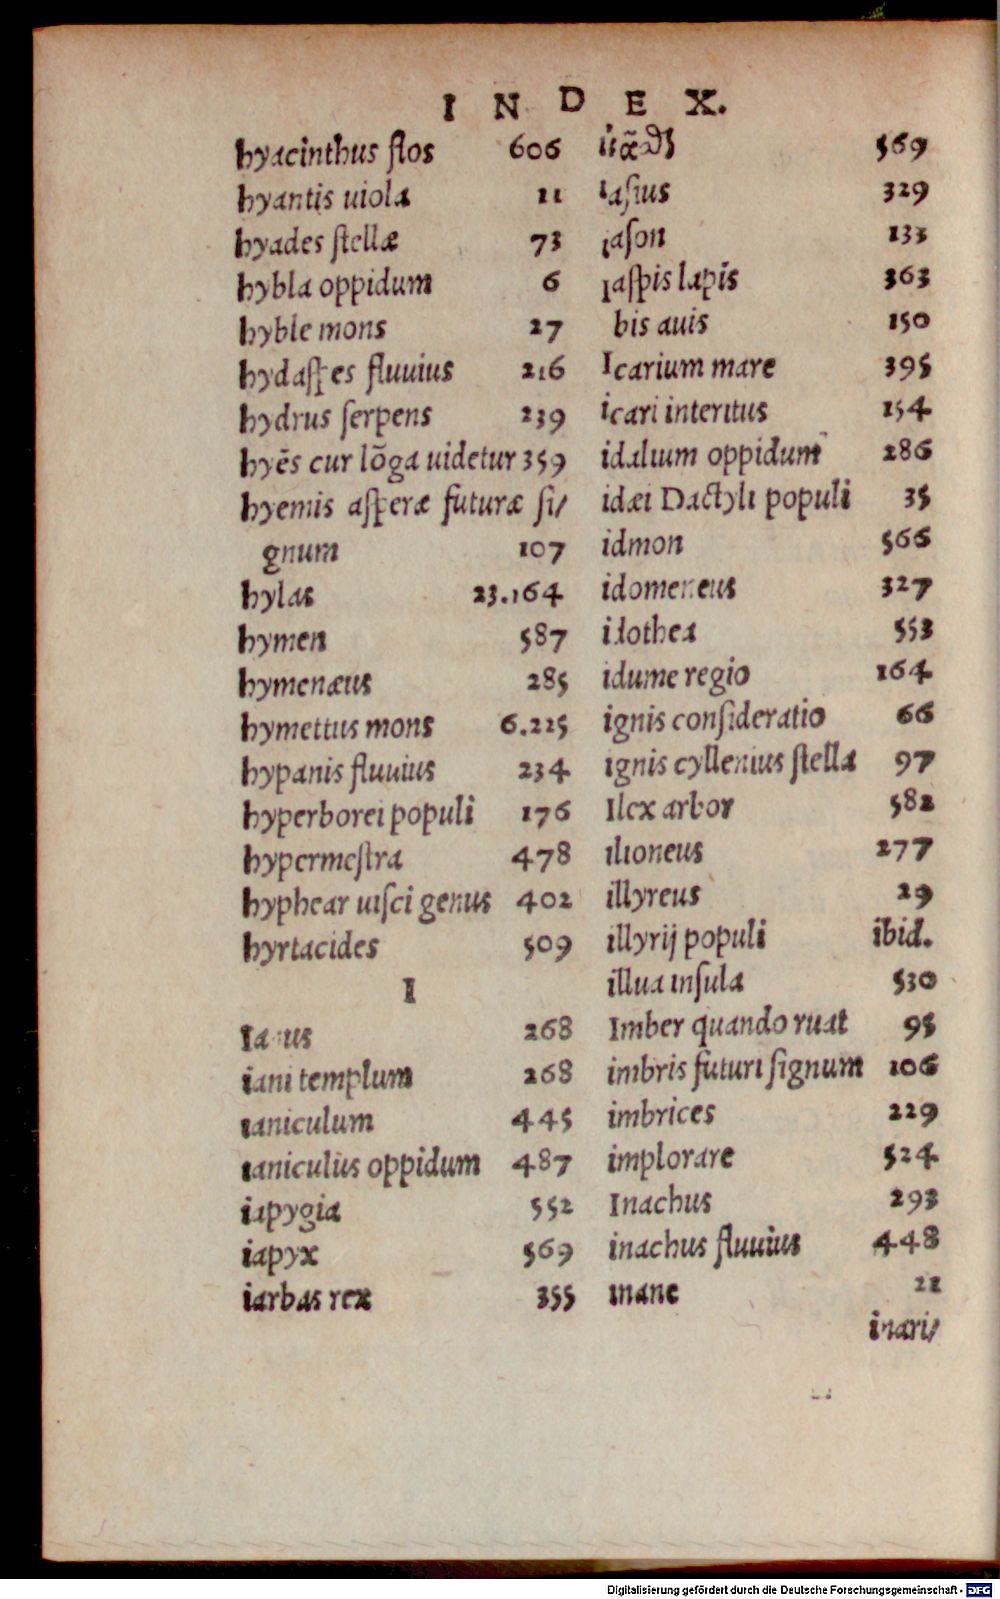 INDEX.
hyacinthus flos 606
hyantis uiola 11
hyades ſtellæ 73
hybla oppidum 6
hyble mons 27
hydaſpes fluuius 216
hydrus ſerpens 239
hyẽs cur lõga uidetur 359
hyemis aſperæ futuræ ſi/
gnum 107
hylas 23.164
hymen 587
hymenæus 285
hymettus mons 6.225
hypanis fluuius 234
hyperborei populi 176
hypermeſtra 478
hyphear uiſci genus 402
hyrtacides 509
I
Ianus 268
iani templum 268
ianiculum 445
ianiculus oppidum 487
iapygia 552
iapyx 569
iarbas rex 355
569
iaſius 329
iaſon 133
iaſpis lapis 363
bis auis 150
Icarium mare 395
icari interitus 154
idalium oppidum 286
idæi Dactyli populi 35
idmon 566
idomeneus 327
idothea 553
idume regio 164
ignis conſideratio 66
ignis cyllenius ſtella 97
Ilex arbor 582
ilioneus 277
illyreus 29
illyrij populi ibid.
illua inſula 530
Imber quando ruat 95
imbris futuri ſignum 106
imbrices 229
implorare 524
Inachus 293
inachus fluuius 448
inane 22
inari/
Digitalisierung gefördert durch die Deutsche Forschungsgemeinschaft - DFG